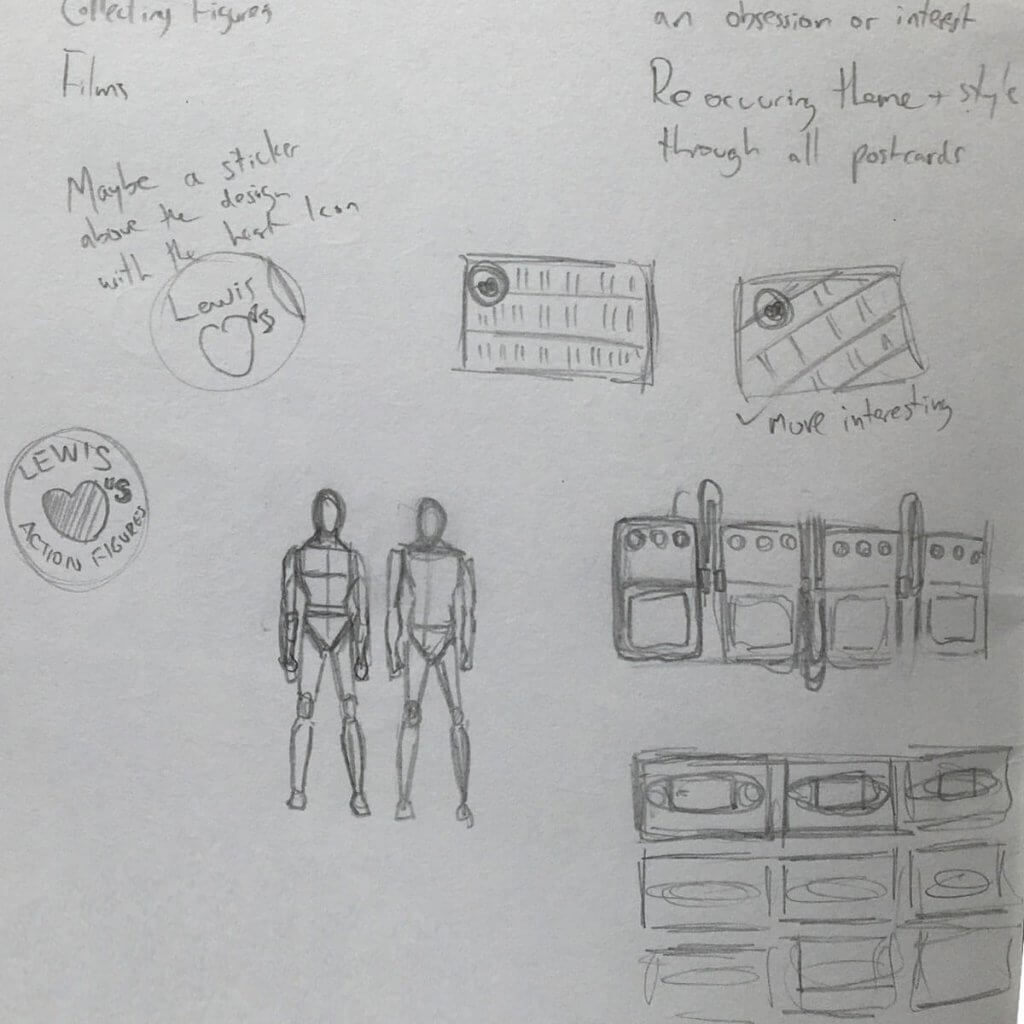 Collecting Figures
Films
an obsession or interest
Reoccuring theme + style
through all postcards
Maybe a sticker
above the design
with the heart Icon
Lewis
's
more interesting
LEWIS
's
ACTION FIGURES